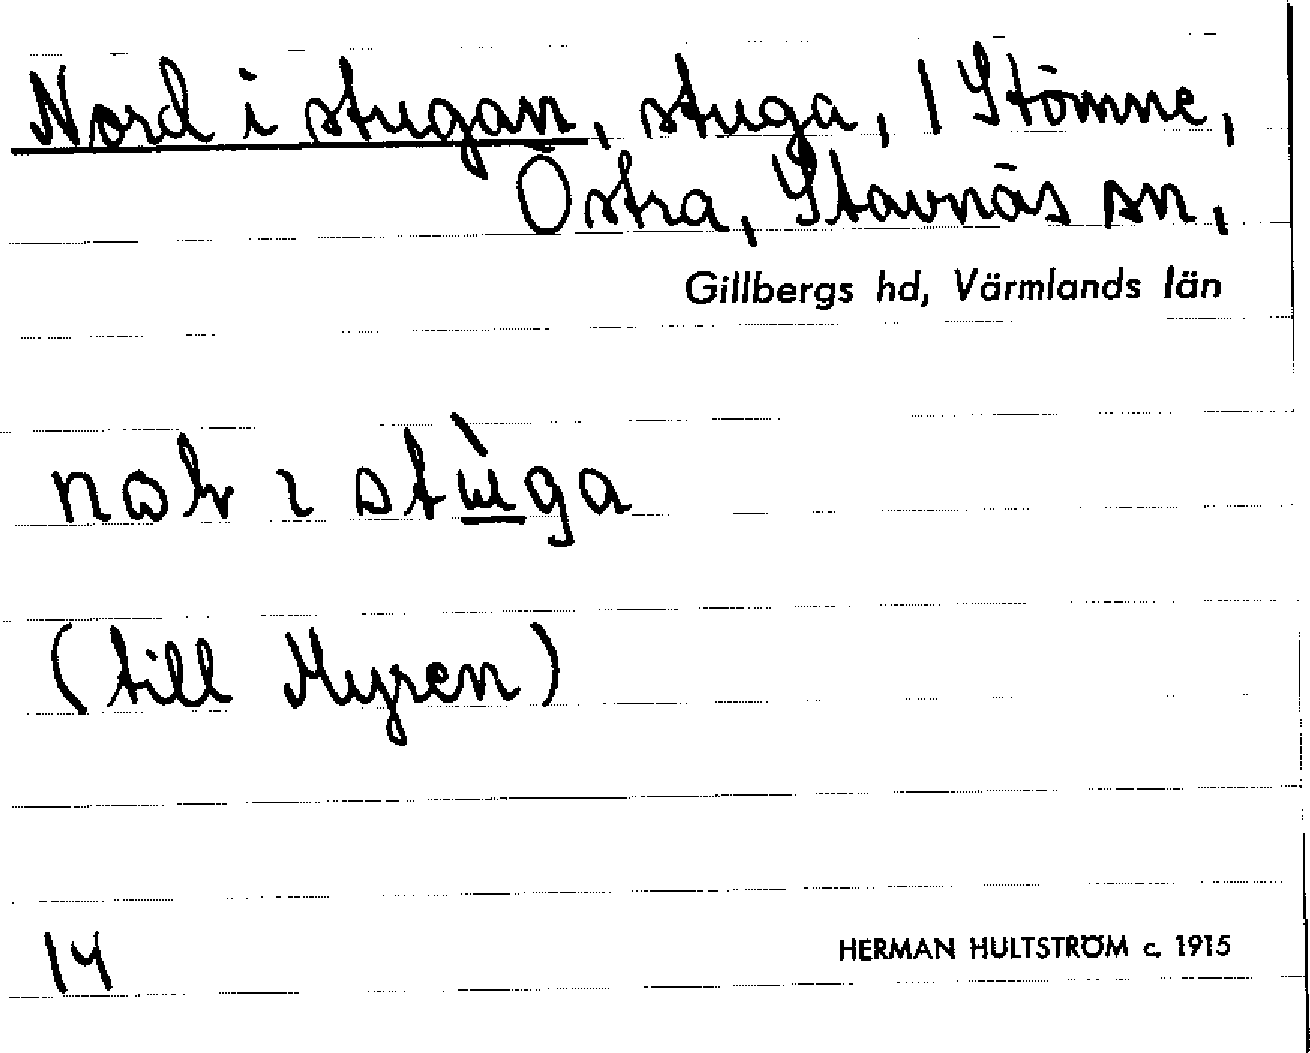 Nord i stugan, stuga, 1 Stömne,
Östra, Stavnäs sn,
Gillbergs hd, Värmlands län
i
(till Myren)
14
HERMAN HULTSTRÖM c. 1915